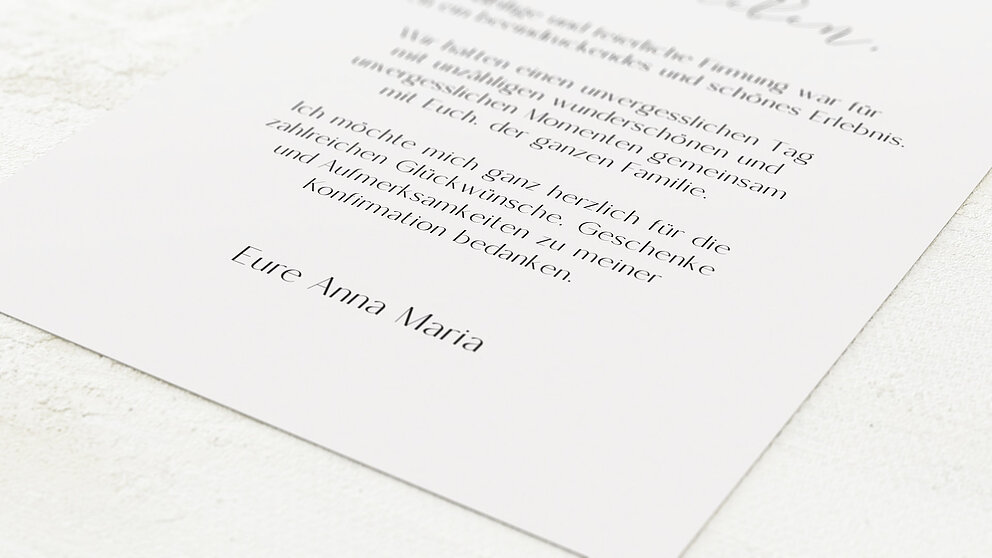 und feierliche Firmung war für
ein beeindruckendes und schönes Erlebnis.
Wir hatten einen unvergesslichen Tag
mit unzähligen wunderschönen und
unvergesslichen Momenten gemeinsam
mit Euch, der ganzen Familie.
Ich möchte mich ganz herzlich für die
zahlreichen Glückwünsche, Geschenke
und Aufmerksamkeiten zu meiner
Konfirmation bedanken.
Eure Anna Maria